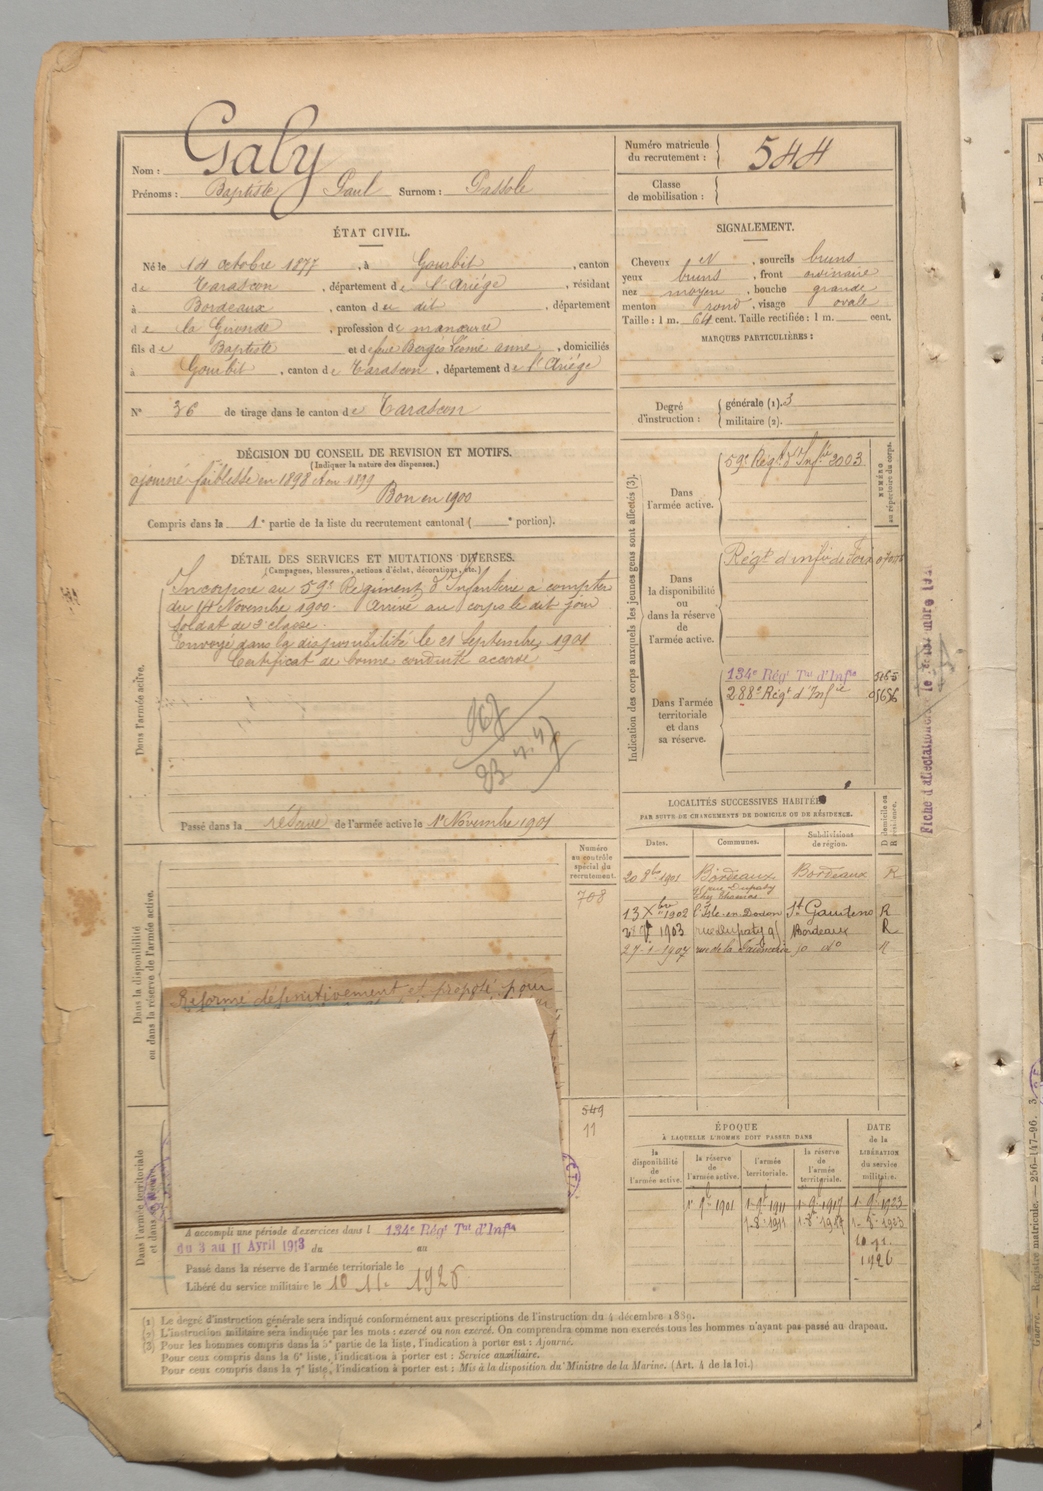 Galy
Nom :
Prénoms : Baptiste Paul Surnom : Passole
Numéro matricule
du recrutement : 544
Classe
de mobilisation :
ÉTAT CIVIL.
Né le 14 octobre 1877, à Gourbit, canton
de Tarascon, département de l'Ariège, résidant
à Bordeaux, canton de dit, département
de la Gironde, profession de manœuvre
fils de Baptiste et de feue Bergès anne, domiciliés
à Gourbit, canton de Tarascon, département de l'Ariège
N° 36 de tirage dans le canton de Tarascon
SIGNALEMENT.
Cheveux N, sourcils bruns
yeux bruns, front ordinaire
nez moyen, bouche grande
menton rond, visage ovale
Taille : 1 m. 64 cent. Taille rectifiée : 1 m. cent.
MARQUES PARTICULIÈRES :
Degré
d'instruction :
générale (1). 3
militaire (2).
DÉCISION DU CONSEIL DE REVISION ET MOTIFS.
(Indiquer la nature des dispenses.)
ajourné faiblesse en 1898 et en 1899
Bon en 1900
Compris dans la 1e partie de la liste du recrutement cantonal ( e portion).
DÉTAIL DES SERVICES ET MUTATIONS DIVERSES.
(Campagnes, blessures, actions d'éclat, décorations, etc.)
Dans l'armée active.
Incorporé au 59e Régiment d'Infanterie à compter
du 14 Novembre 1900. Arrivé au corps le dit jour
Soldat de 2e classe.
Envoyé dans la disponibilité le 21 Septembre 1901
Certificat de bonne conduite accordé
Passé dans la réserve de l'armée active le 1er Novembre 1901
Indication des corps auxquels les jeunes gens sont affectés (3).
NUMÉRO
au répertoire du corps.
Dans
l'armée active.
59e Régt d'Infie 2003
Dans
la disponibilité
ou
dans la réserve
de
l'armée active.
Régt d'infie de Foix
Dans l'armée
territoriale
et dans
sa réserve.
134e Régt Tal d'Infie 5165
288e Régt d'Infie 05656
Fiche d'affectation
LOCALITÉS SUCCESSIVES HABITÉES
PAR SUITE DE CHANGEMENTS DE DOMICILE OU DE RÉSIDENCE.
Dates. Communes. Subdivisions
de région.
D domicile ou
R résidence.
20 8bre 1901 Bordeaux Bordeaux R
91 rue Dupaty
13 Xbre 1902 l'Isle-en-Dodon St Gaudens R
1903 rue Dupaty 91 Bordeaux R
27-1-1907 rue de la R
Numéro
au contrôle
spécial du
recrutement.
708
Dans la disponibilité
ou dans la réserve de l'armée active.
Réformé définitivement et proposé pour
549
11
Dans l'armée territoriale
et dans sa réserve
A accompli une période d'exercices dans l 134e Régt Tal d'Infie
du 3 au 11 Avril 1913 du au
Passé dans la réserve de l'armée territoriale le
Libéré du service militaire le 10 11 1926
ÉPOQUE
À LAQUELLE L'HOMME DOIT PASSER DANS
DATE
de la
LIBÉRATION
du service
militaire.
la
disponibilité
de
l'armée active.
la réserve
de
l'armée active.
l'armée
territoriale.
la réserve
de
l'armée
territoriale.
1er 9bre 1901
1926
(1) Le degré d'instruction générale sera indiqué conformément aux prescriptions de l'instruction du 4 décembre 1889.
(2) L'instruction militaire sera indiquée par les mots : exercé ou non exercé. On comprendra comme non exercés tous les hommes n'ayant pas passé au drapeau.
(3) Pour les hommes compris dans la 5e partie de la liste, l'indication à porter est : Ajourné.
Pour ceux compris dans la 6e liste, l'indication à porter est : Service auxiliaire.
Pour ceux compris dans la 7e liste, l'indication à porter est : Mis à la disposition du Ministre de la Marine. (Art. 4 de la loi.)
Guerre. — Registre matricule. — 256-147-96.